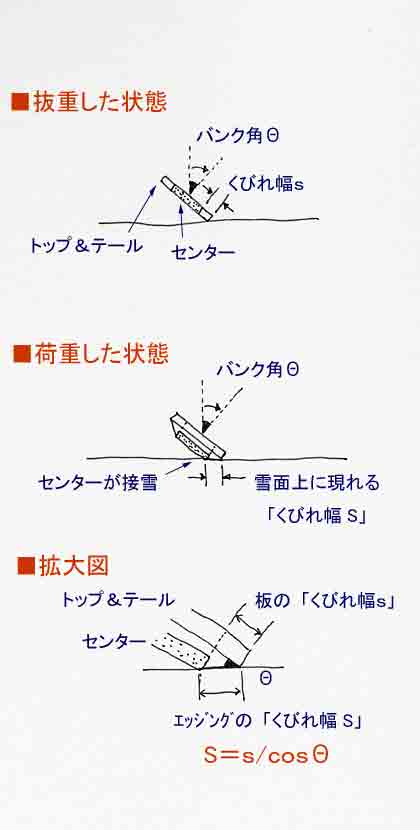 ■抜重した状態
バンク角Θ
くびれ幅s
トップ＆テール
センター
■荷重した状態
バンク角Θ
センターが接雪
雪面上に現れる
「くびれ幅 S」
■拡大図
トップ＆テール
板の「くびれ幅s」
センター
Θ
ｴｯｼﾞﾝｸﾞの「くびれ幅 S」
S＝s/cosΘ